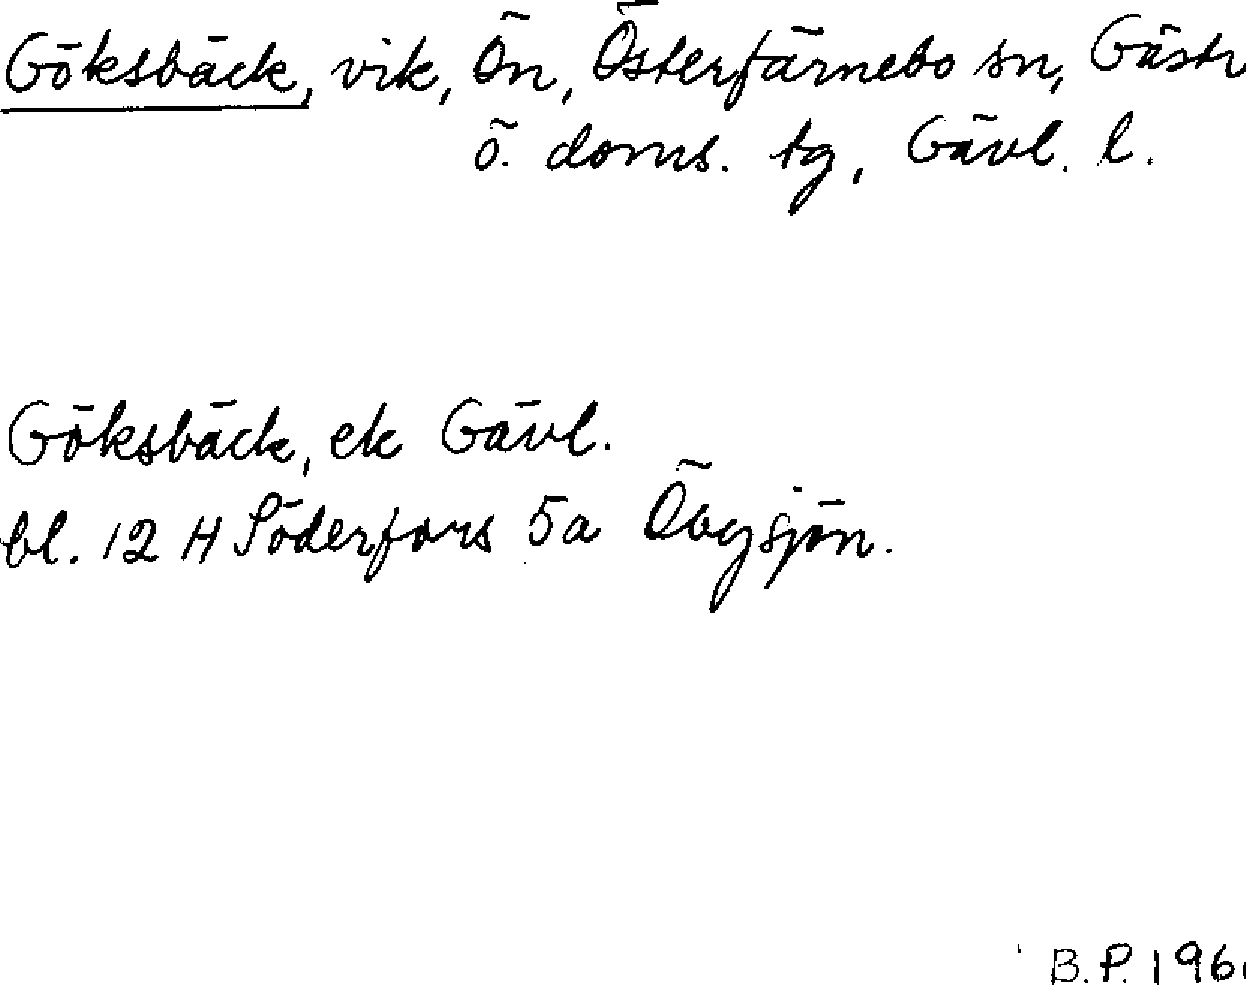 Göksbäck, vik, Ön, Österfärnebo sn, Gästr
ö. doms. tg, Gävl. l.
Göksbäck, ek Gävl.
bl. 12 H Söderfors 5a Öbysjön.
B.P. 196